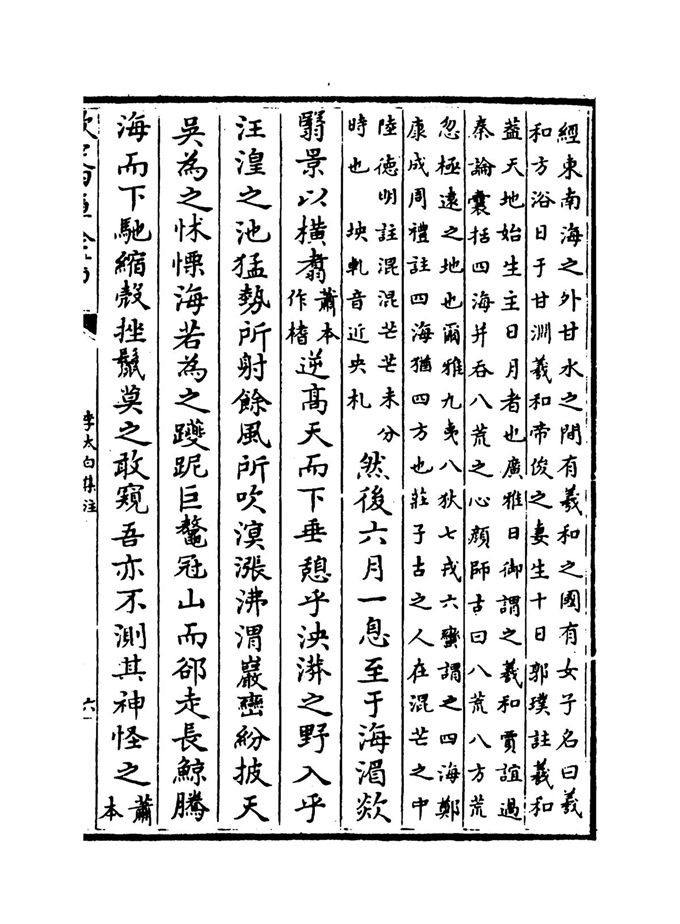 經東南海之外甘水之間有羲和之國有女子名曰羲
和方浴日于甘淵羲和帝俊之妻生十日郭璞註羲和
葢天地始生主日月者也廣雅日御謂之羲和賈誼過
秦論囊括四海并吞八荒之心顔師古曰八荒八方荒
忽極遠之地也爾雅九夷八狄七戎六蠻謂之四海鄭
康成周禮註四海猶四方也莊子古之人在混芒之中
陸德明註混混芒芒未分
時也 坱軋音近央札
然後六月一息至于海湄欻
翳景以橫翥蕭本作㨪逆高天而下垂憩乎泱漭之野入乎
汪湟之池猛勢所射餘風所吹溟漲沸渭巖巒紛披天
吳為之怵慄海若為之躨跜巨鰲冠山而郤走長鯨騰
海而下馳縮殻挫鬛莫之敢窺吾亦不測其神怪之蕭本
李太白集注
六